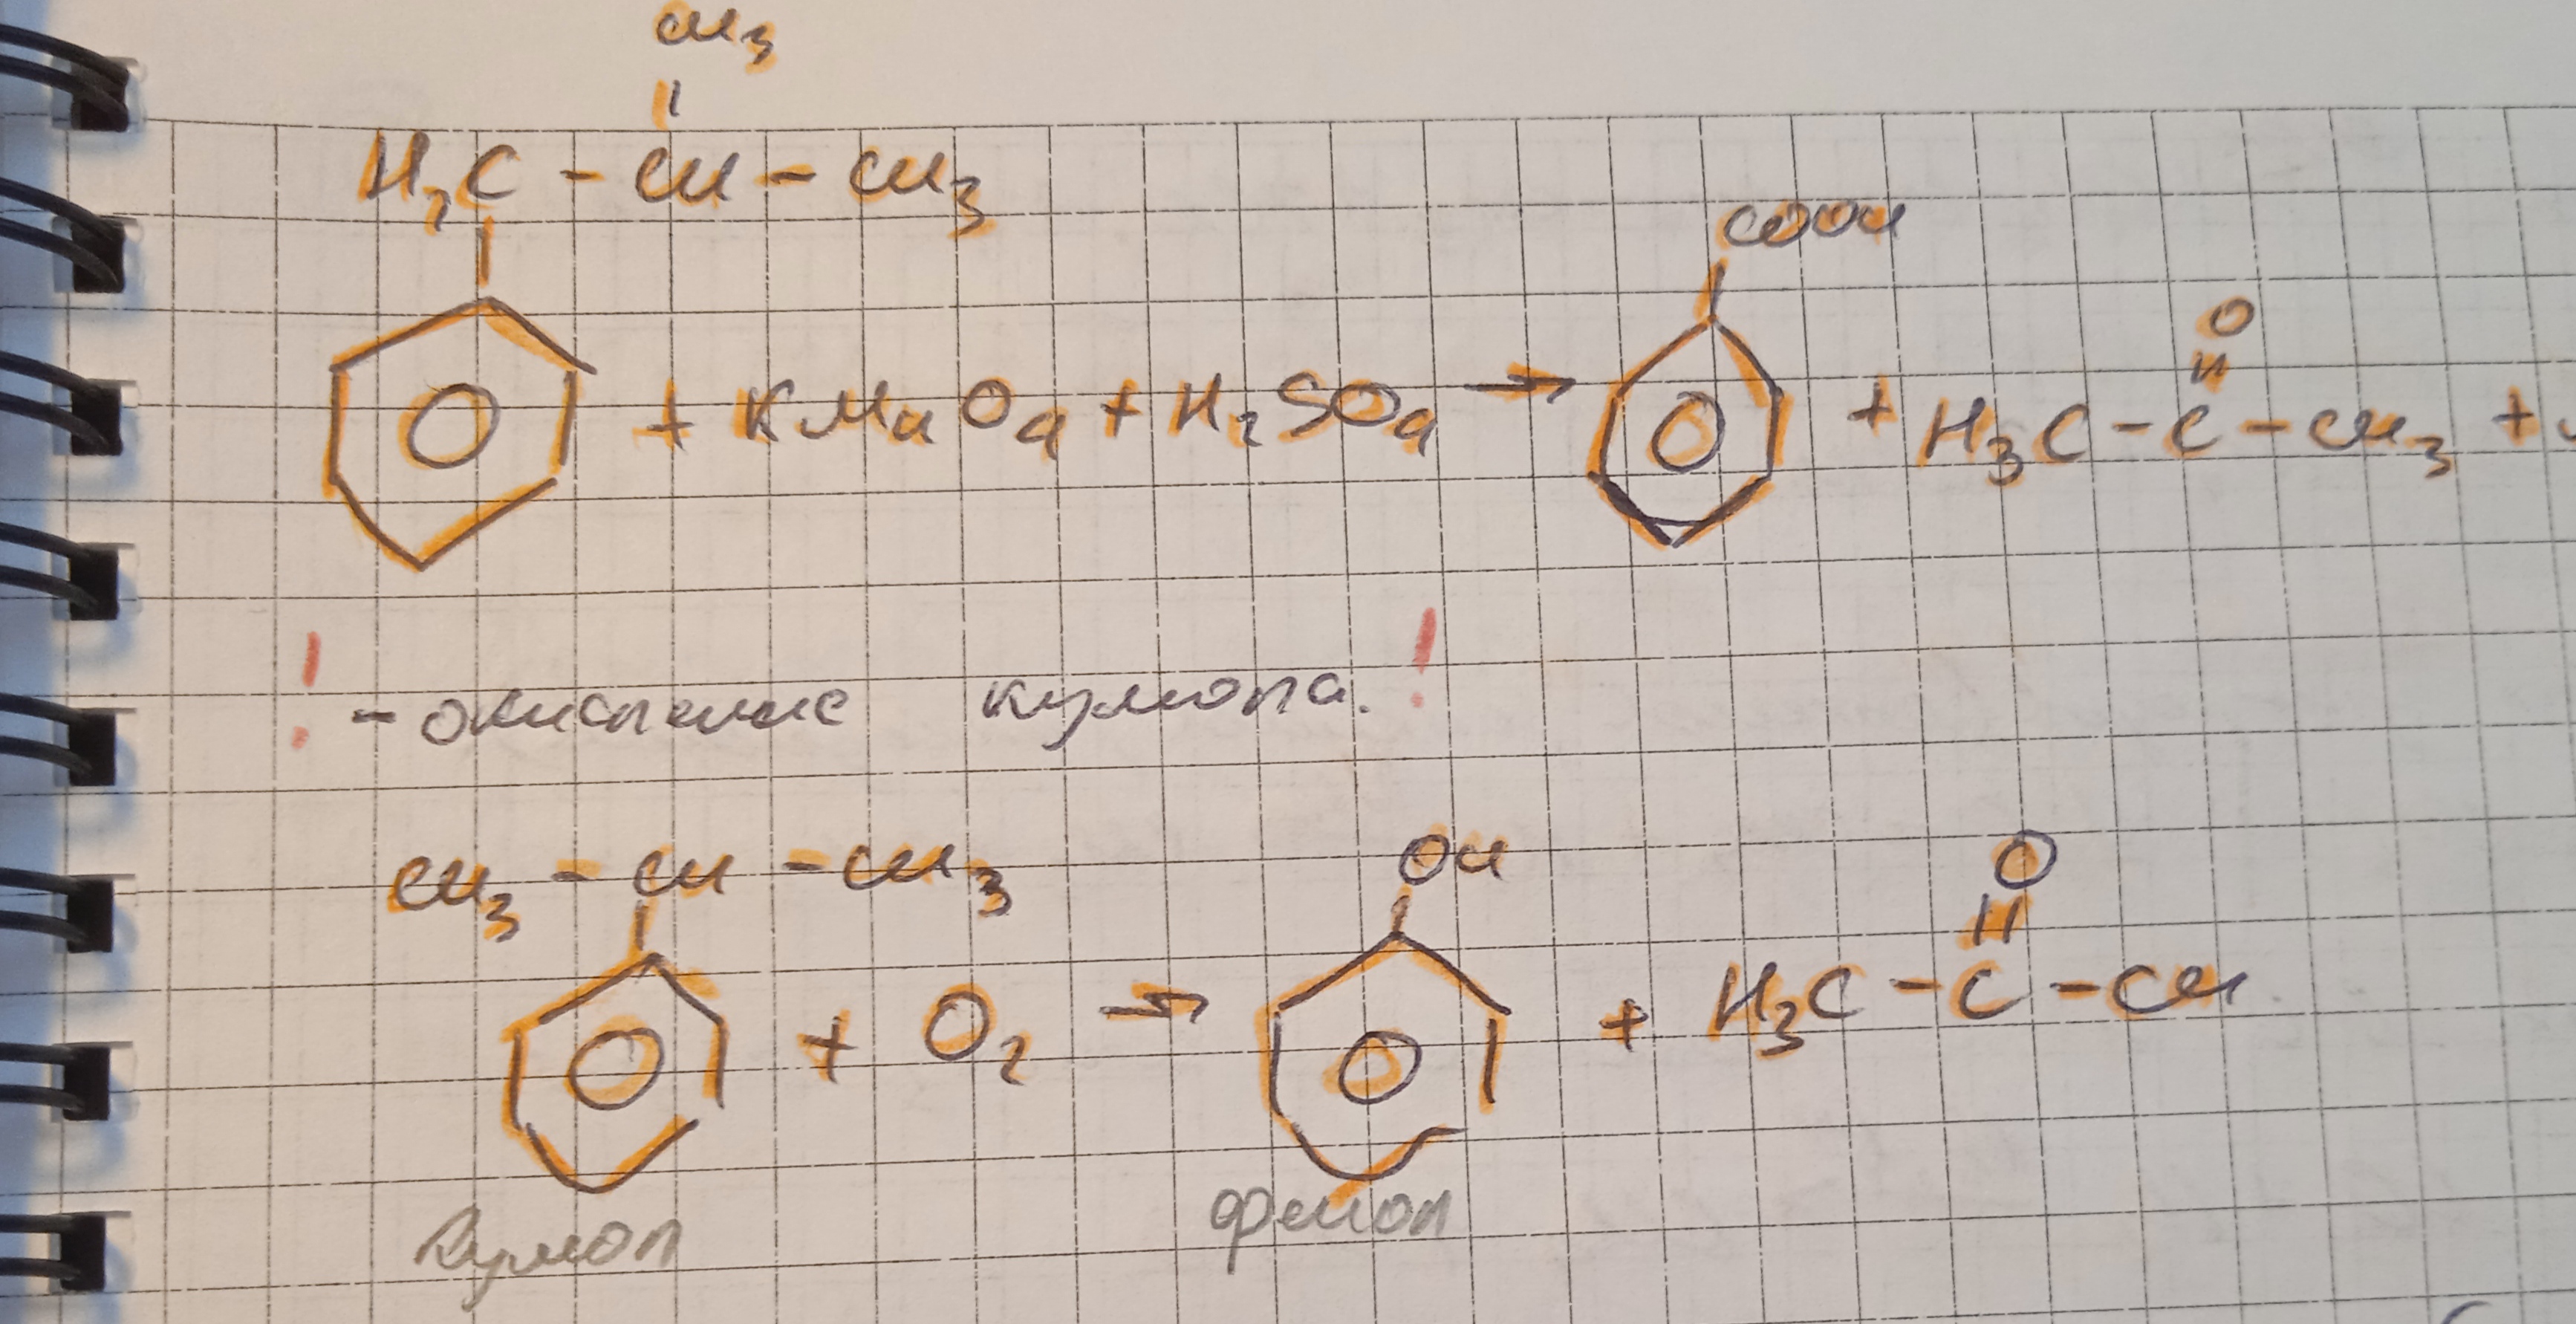 CH3
||
H2C - CH - CH3
COOH
O
||
+ KMnO4 + H2SO4 → + H3C - C - CH3 +
! - окисление кумола. !
CH3 - CH - CH3
OH
O
||
+ O2 → + H3C - C - CH
Кумол
фенол